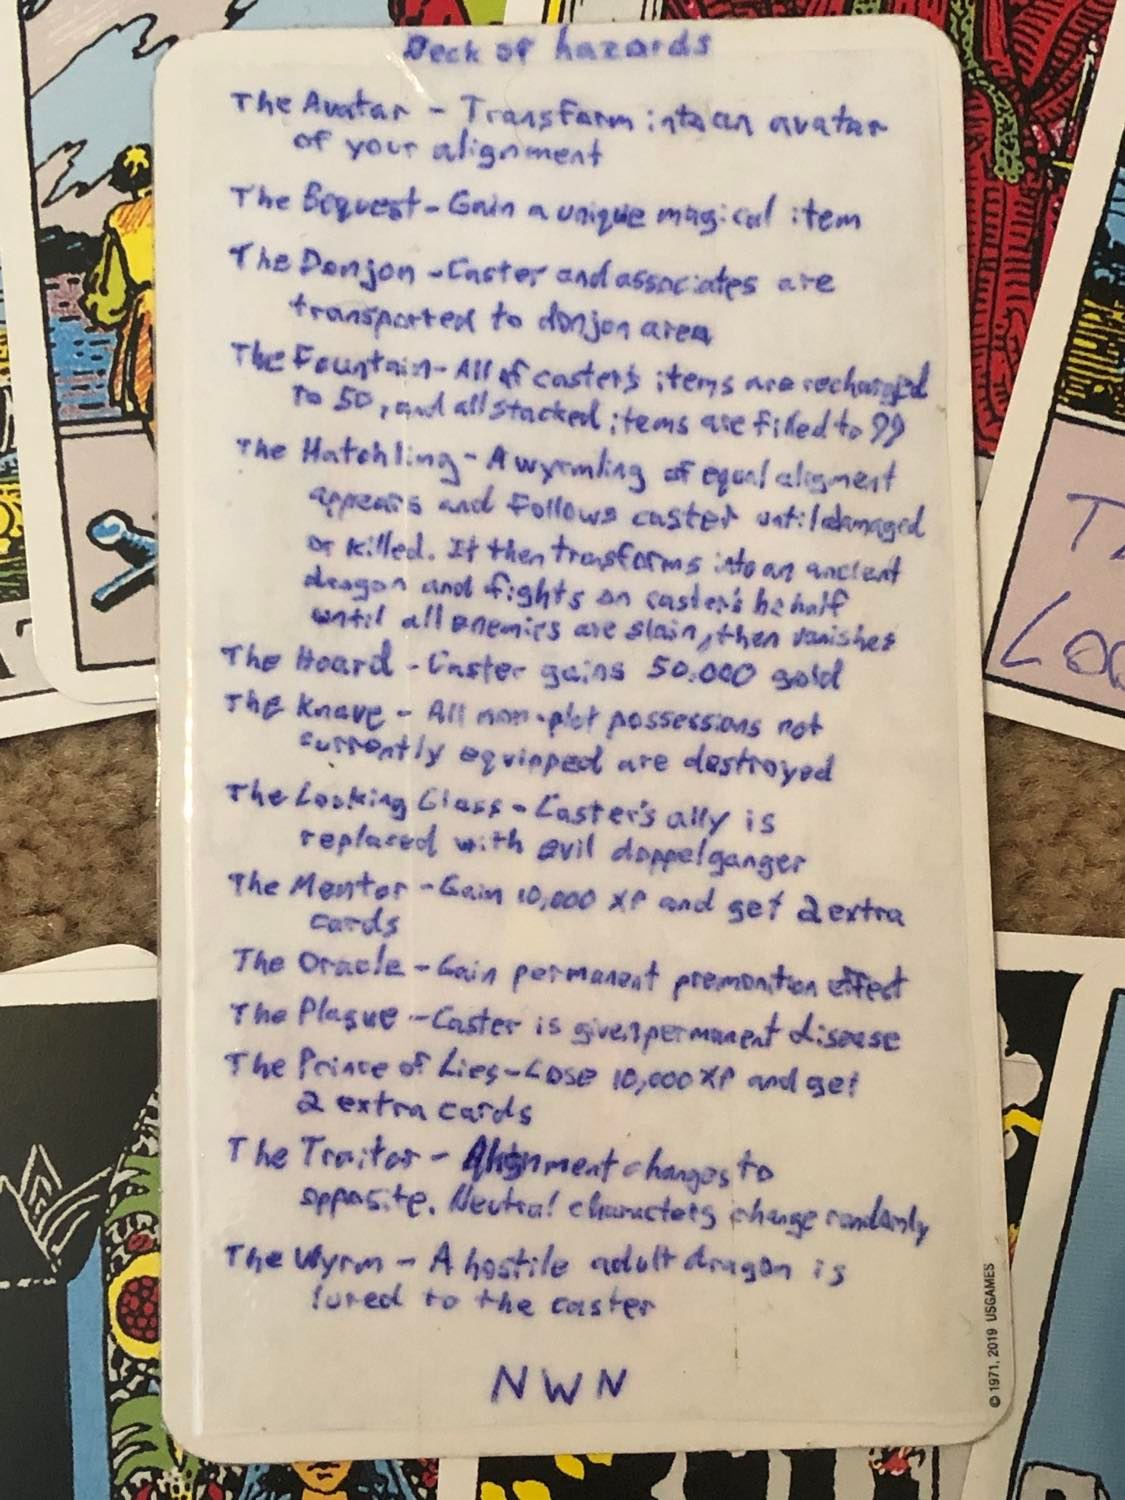 Deck of hazards
The Avatar - Transform into an avatar
of your alignment
The Bequest - Gain a unique magical item
The Donjon - Caster and associates are
transported to donjon area
The Fountain - All of caster's items are recharged
to 50, and all stacked items are filled to 99
The Hatchling - A wyrmling of equal aligment
appears and follows caster until damaged
or killed. It then transforms into an ancient
dragon and fights on caster's behalf
until all enemies are slain, then vanishes
The Hoard - Caster gains 50,000 gold
The Knave - All non-plot possessions not
currently equipped are destroyed
The Looking Glass - Caster's ally is
replaced with evil doppelganger
The Mentor - Gain 10,000 XP and get 2 extra
cards
The Oracle - Gain permanent premonition effect
The Plague - Caster is given permanent disease
The Prince of Lies - Lose 10,000 XP and get
2 extra cards
The Traitor - Alignment changes to
opposite. Neutral characters change randomly
The Wyrm - A hostile adult dragon is
lured to the caster
NWN
© 1971, 2019 USGAMES